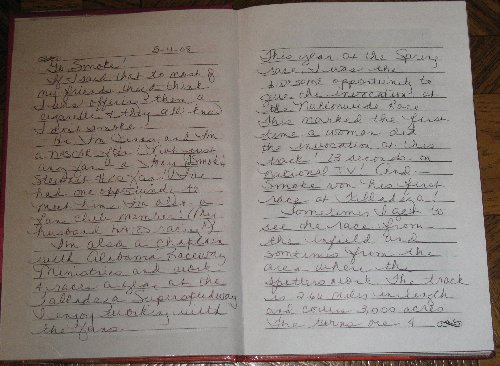 5-11-08
Go Smoke!
If I said that to most of
my friends they'd think
I was offering them a
cigarette & they all know
I don't smoke.
Hi I'm and I'm
a NASCAR fan. Not just
any fan a Tony (Smoke)
Stewart fan. I've
had one opportunity to
meet him. I'm also a
fan club member. (My
husband too.)
I'm also a Chaplain
with Alabama Raceway
Ministries and work
races a year at the
Talladega Superspeedway
I enjoy working with
the fans.
This year at the Spring
race I was the
opportunity to
give the invocation at
the Nationwide Race.
This marked the first
time a woman did
the invocation at this
track! 13 seconds on
national TV! And
Smoke won his first
race at Talladega!
Sometimes I get to
see the race from
the infield and
sometimes from the
area where the
spotters work. The track
is 2.66 miles in length
and covers 2,000 acres
The turns are